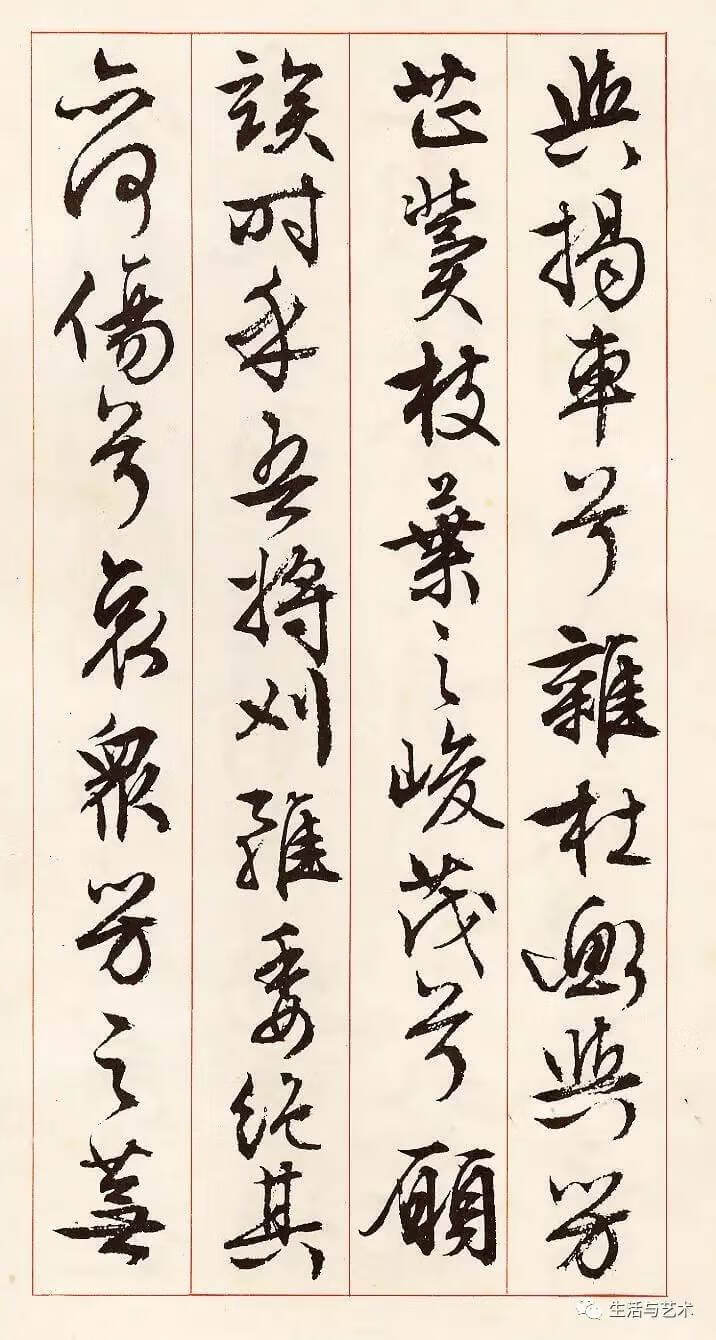 與揭車兮雜杜衡與芳
芷冀枝葉之峻茂兮願
竢时乎吾將刈雖委絕其
亦何傷兮哀眾芳之蕪
生活与艺术